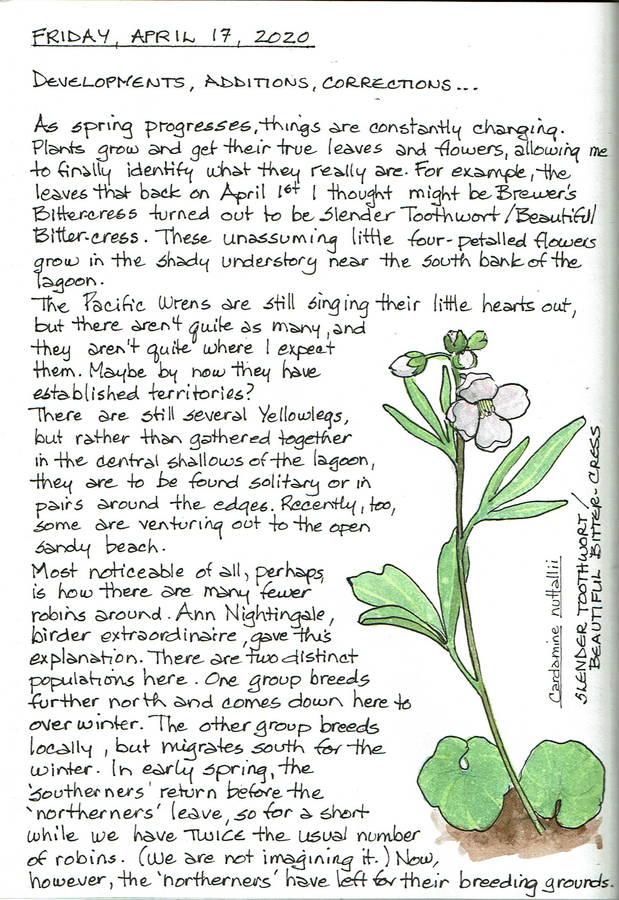 FRIDAY, APRIL 17, 2020
DEVELOPMENTS, ADDITIONS, CORRECTIONS...
As spring progresses, things are constantly changing.
Plants grow and get their true leaves and flowers, allowing me
to finally identify what they really are. For example, the
leaves that back on April 1st I thought might be Brewer's
Bittercress turned out to be Slender Toothwort/Beautiful
Bitter-cress. These unassuming little four-petalled flowers
grow in the shady understory near the south bank of the
lagoon.
The Pacific Wrens are still singing their little hearts out,
but there aren't quite as many, and
they aren't quite where I expect
them. Maybe by now they have
established territories?
There are still several Yellowlegs,
but rather than gathered together
in the central shallows of the lagoon,
they are to be found solitary or in
pairs around the edges. Recently, too,
some are venturing out to the open
sandy beach.
Most noticeable of all, perhaps,
is how there are many fewer
robins around. Ann Nightingale,
birder extraordinaire, gave this
explanation. There are two distinct
populations here. One group breeds
further north and comes down here to
over winter. The other group breeds
locally, but migrates south for the
winter. In early spring, the
'southerners' return before the
'northerners' leave, so for a short
while we have TWICE the usual number
of robins. (We are not imagining it.) Now,
however, the 'northerners' have left for their breeding grounds.
Cardamine nuttallii
SLENDER TOOTHWORT/
BEAUTIFUL BITTER-CRESS